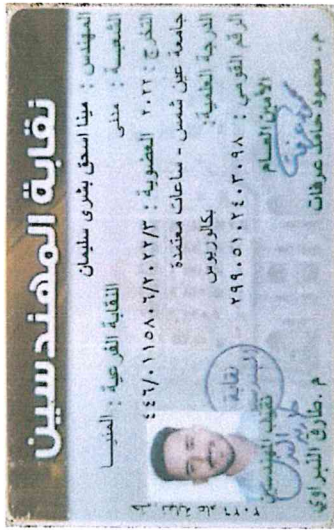 نقابة المهندسين
المهندس : مينا اسحق بشرى سليمان
الشعبة : مدنى النقابة الفرعية : المنيا
التخرج : ٢٠٢٢ العضوية : ٤٤٦/٠١١٥٨٠٦/٢٠٢٢/٣
جامعة عين شمس - ساعات معتمدة
الدرجة العلمية: بكالوريوس
الرقم القومى : ٢٩٩٠٥١٠٢٤٠٣٠٩٨
الأمين العام
نقيب المهندسين
م. محمود حامد عرفات
م. طارق النبراوي
نقابة